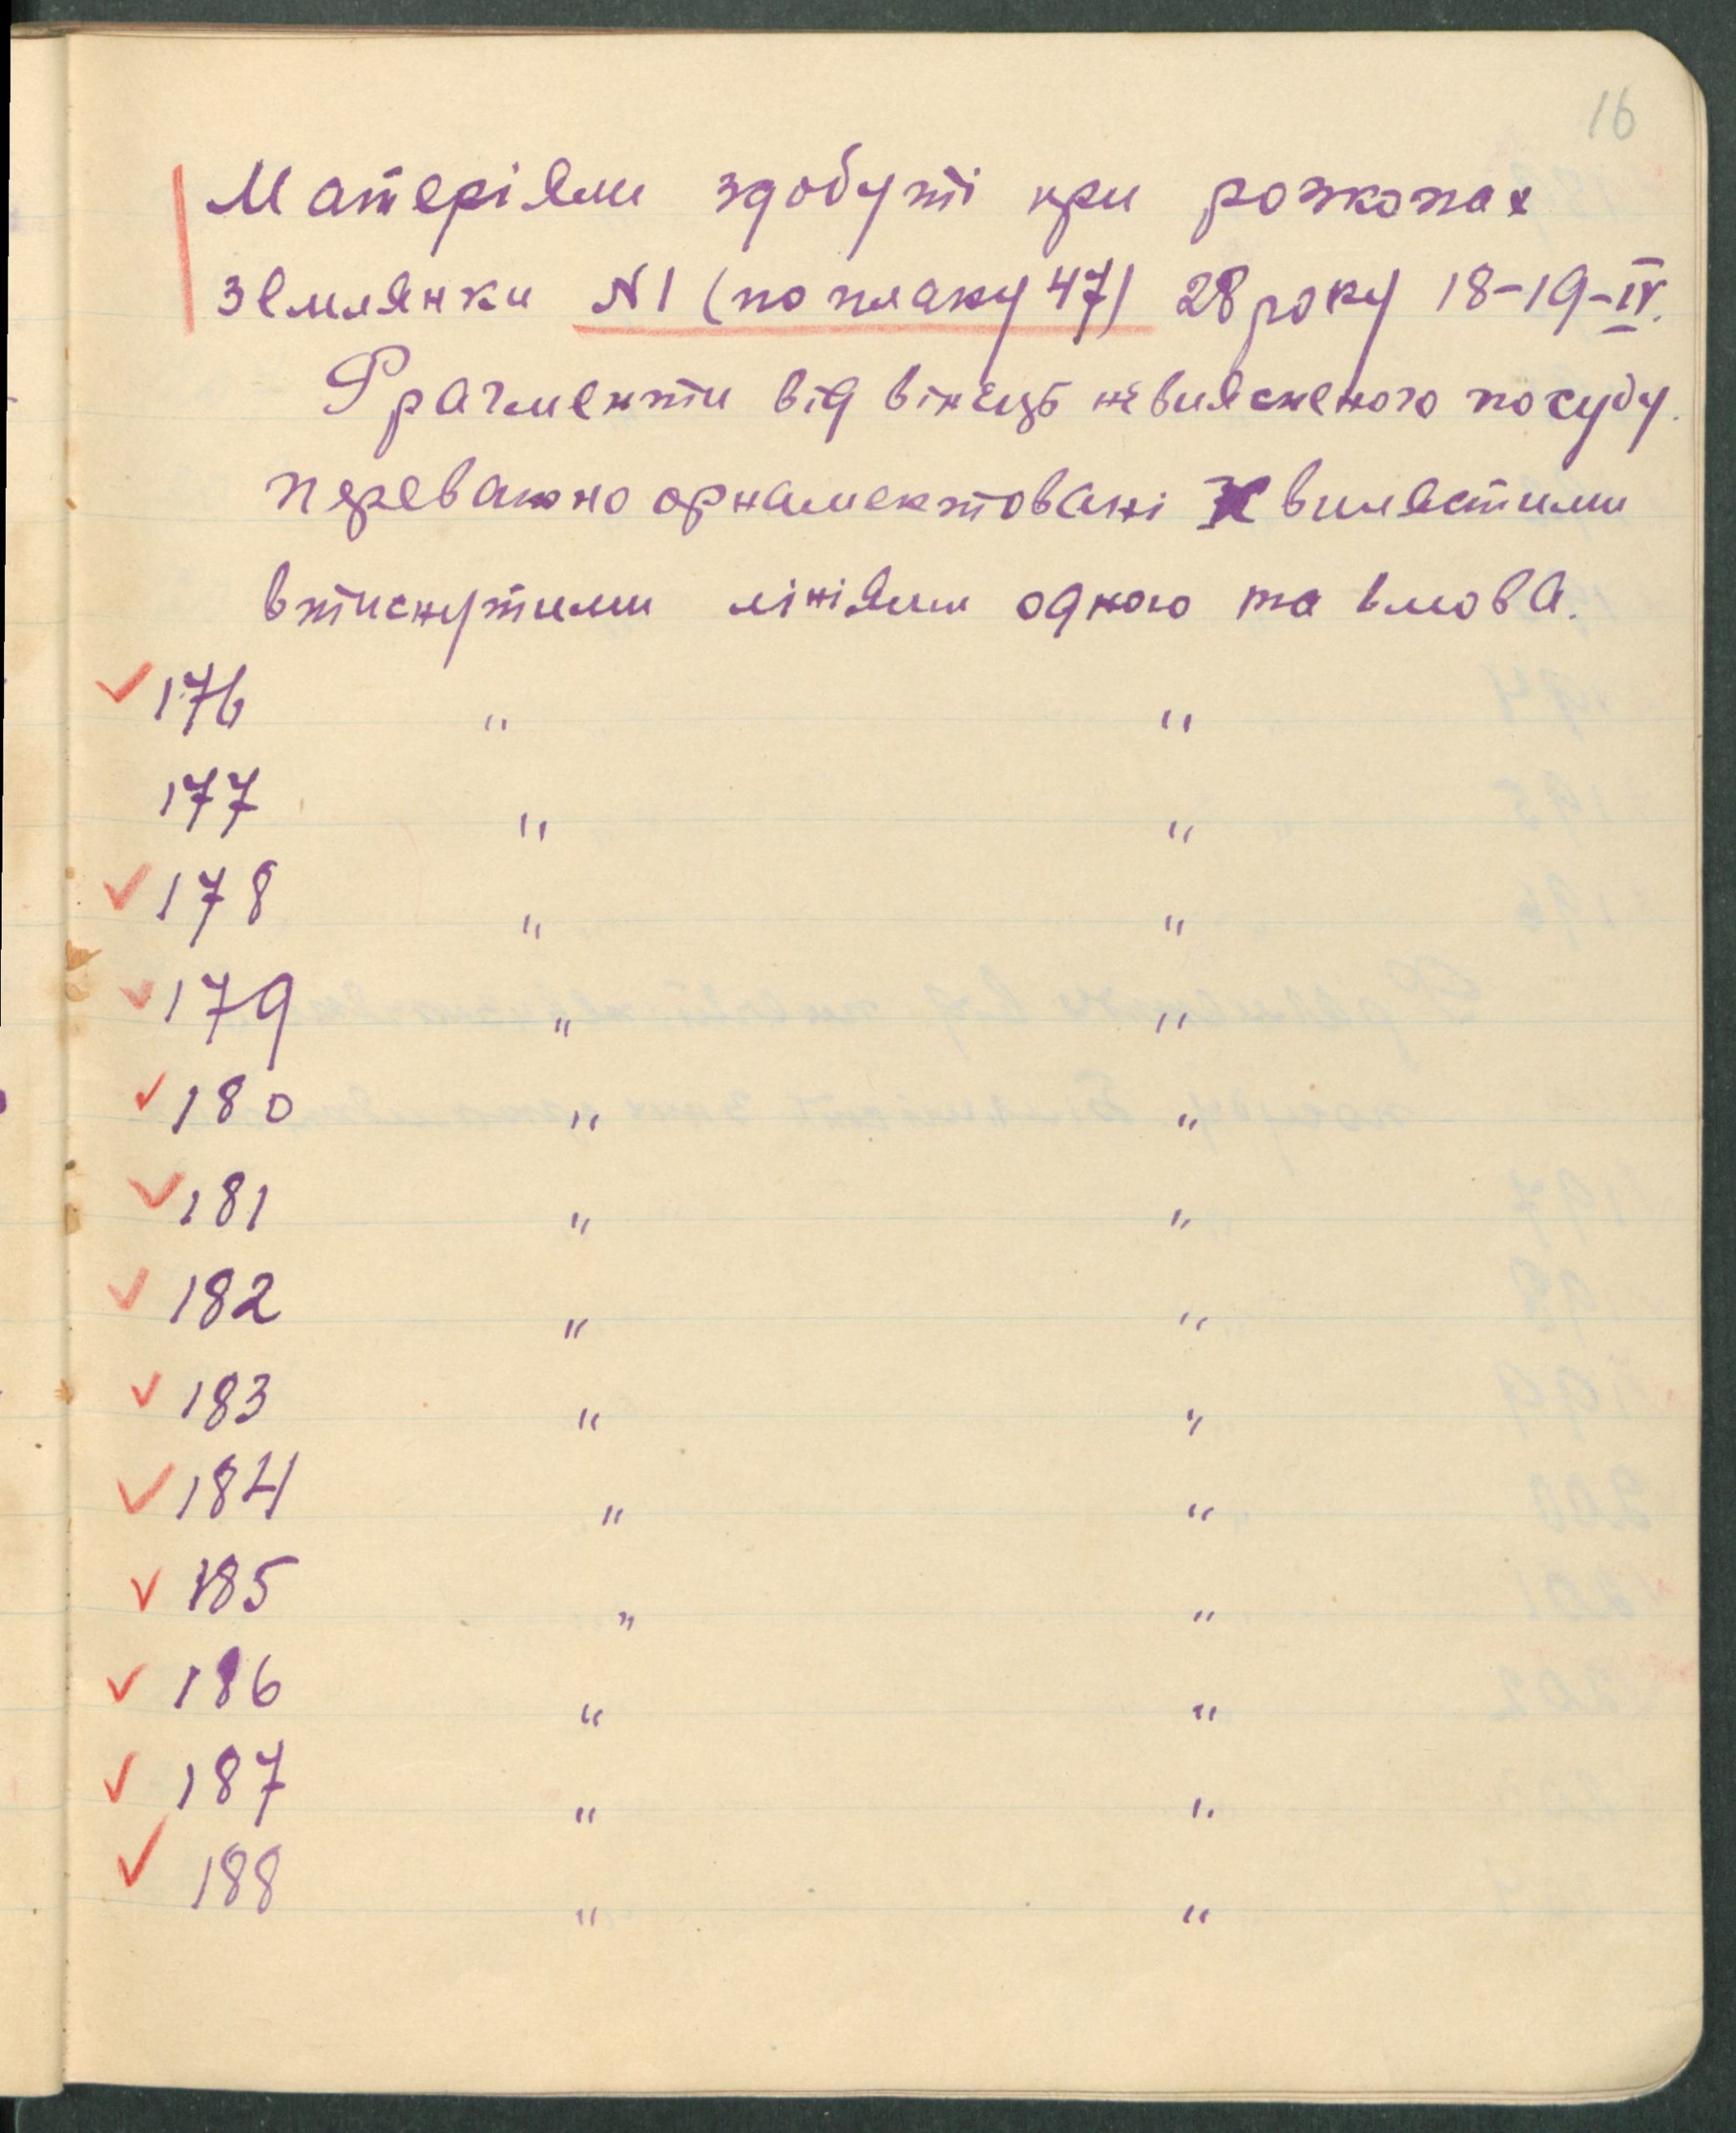 16
Матеріяли здобуті при розкопах
землянки №1 (по плану 47) 28 року 18-19-IV.
Фрагменти від вінець невиясненого посуду.
переважно орнаментовані хвилястими
втиснутими лініями одною та
176 " "
177 " "
178 " "
179 " "
180 " "
181 " "
182 " "
183 " "
184 " "
185 " "
186 " "
187 " "
188 " "